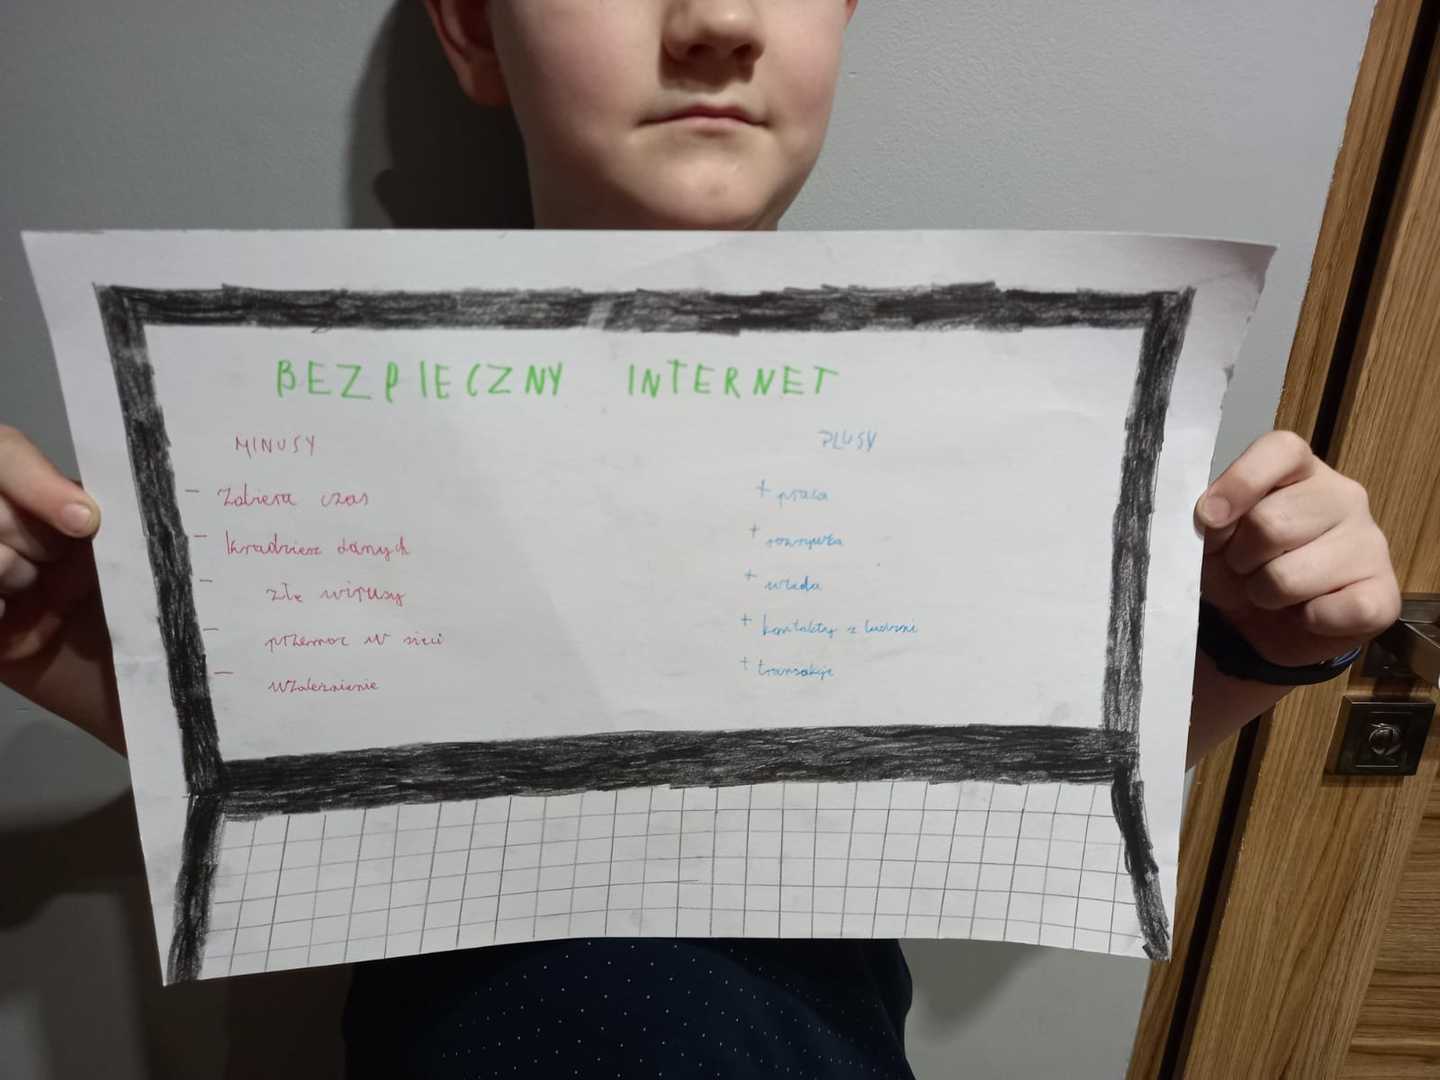 BEZPIECZNY INTERNET
MINUSY
- Zabiera czas
- kradzież danych
- złe wirusy
- przemoc w sieci
- uzależnienie
PLUSY
+ praca
+ rozrywka
+ wiedza
+ kontakty z ludźmi
+ transakcje